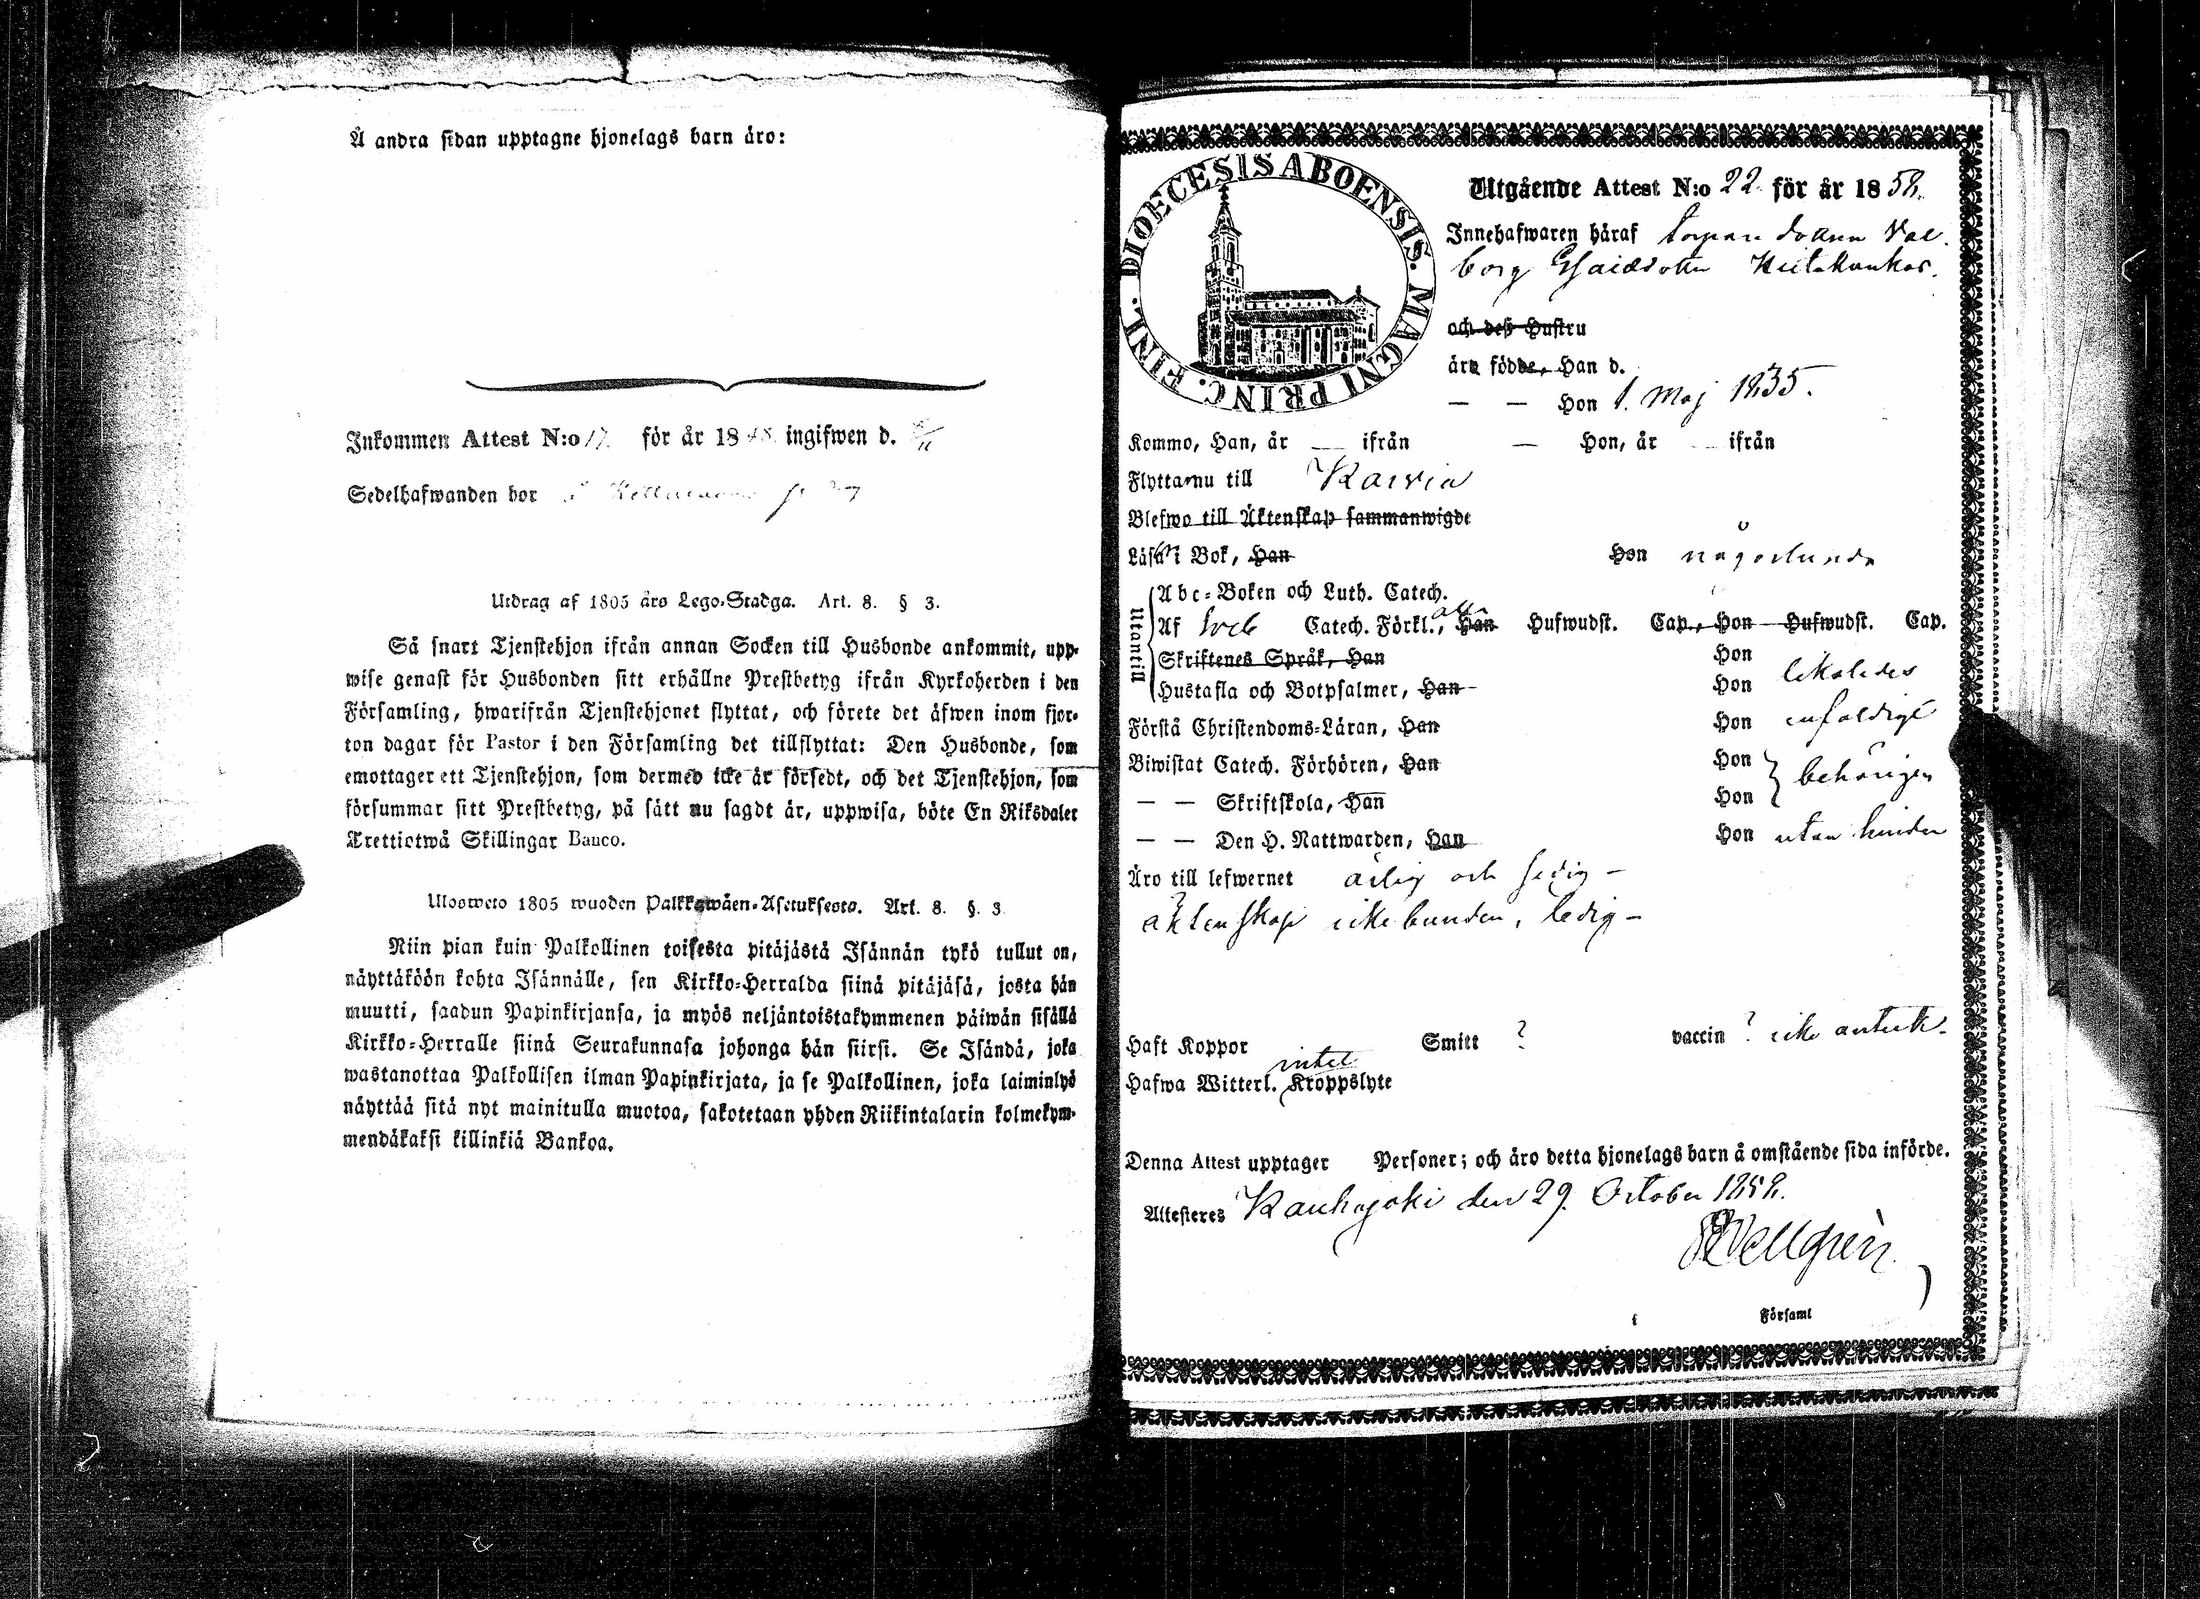 Å andra sidan upptagne hjonelags barn äro:
Inkommen Attest N:o 17. för år 18 58. ingifwen d.
Sedelhafwanden bor
Utdrag af 1805 års Lego-Stadga. Art. 8. § 3.
Så snart Tjenstehjon ifrån annan Socken till Husbonde ankommit, upp-
wise genast för Husbonden sitt erhållne Prestbetyg ifrån Kyrkoherden i den
Församling, hwarifrån Tjenstehjonet flyttat, och förete det äfwen inom fjor-
ton dagar för Pastor i den Församling det tillflyttat: Den Husbonde, som
emottager ett Tjenstehjon, som dermed icke är försedt, och det Tjenstehjon, som
försummar sitt Prestbetyg, på sätt nu sagdt är, uppwisa, böte En Riksdaler
Trettiotwå Skillingar Banco.
Ulosweto 1805 wuoden Palkkawäen-Asetuksesta. Art. 8. §. 3
Niin pian kuin Palkollinen toisesta pitäjästä Isännän tykö tullut on,
näyttäköön kohta Isännälle, sen Kirkko-Herralda siinä pitäjäsä, josta hän
muutti, saadun Papinkirjansa, ja myös neljäntoistakymmenen päiwän sisällä
Kirkko-Herralle siinä Seurakunnasa johonga hän siirsi. Se Isändä, joka
wastanottaa Palkollisen ilman Papinkirjata, ja se Palkollinen, joka laiminlyö
näyttää sitä nyt mainitulla muotoa, sakotetaan yhden Riikintalarin kolmekym-
mendäkaksi killinkiä Bankoa.
DIOECESIS ABOENSIS. MAGNI PRINC. FINL.
Utgående Attest N:o 22. för år 18 58.
Innehafwaren häraf torpare dottern Val-
borg Esaiædotter
och deß Hustru
äro födde, Han d.
— — Hon 1. Maj 1835.
Kommo, Han, år — ifrån — Hon, år — ifrån
Flytta nu till Karvia
Blefwo till Äktenskap sammanwigde
Läsa i Bok, Han Hon någorlunda
Utantill
Abc-Boken och Luth. Catech.
Af Sveb Catech. Förkl., alla Han Hufwudst. Cap., Hon Hufwudst. Cap.
Skriftenes Språk, Han Hon
Hustafla och Botpsalmer, Han Hon likaledes
Förstå Christendoms-Läran, Han Hon enfaldigt
Biwistat Catech. Förhören, Han Hon
— — Skriftskola, Han Hon behörigen
— — Den H. Nattwarden, Han Hon utan hinder
Äro till lefwernet ärlig och sedig —
äktenskap icke bunden, ledig —
Haft Koppor Smitt ? vaccin ? icke anteckn.
Hafwa Witterl. Kroppslyte intet
Denna Attest upptager Personer; och äro detta hjonelags barn å omstående sida införde.
Attesteres Kauhajoki den 29. October 1858.
Wellgren
i Församl